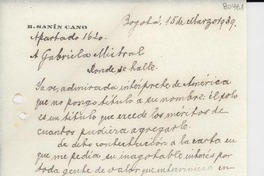 80981
B. SANÍN CANO
Bogotá, 15 de Marzo 1939.
Apartado 1620.
A Gabriela Mistral
Donde se halle.
Ya ve, admirado intérprete de América
que no pongo título a su nombre. él solo
es un título que excede los méritos de
cuantos pudiera agregarle.
di contestación a la carta en
que me pedía su inagotable interés por
toda gente de valor que